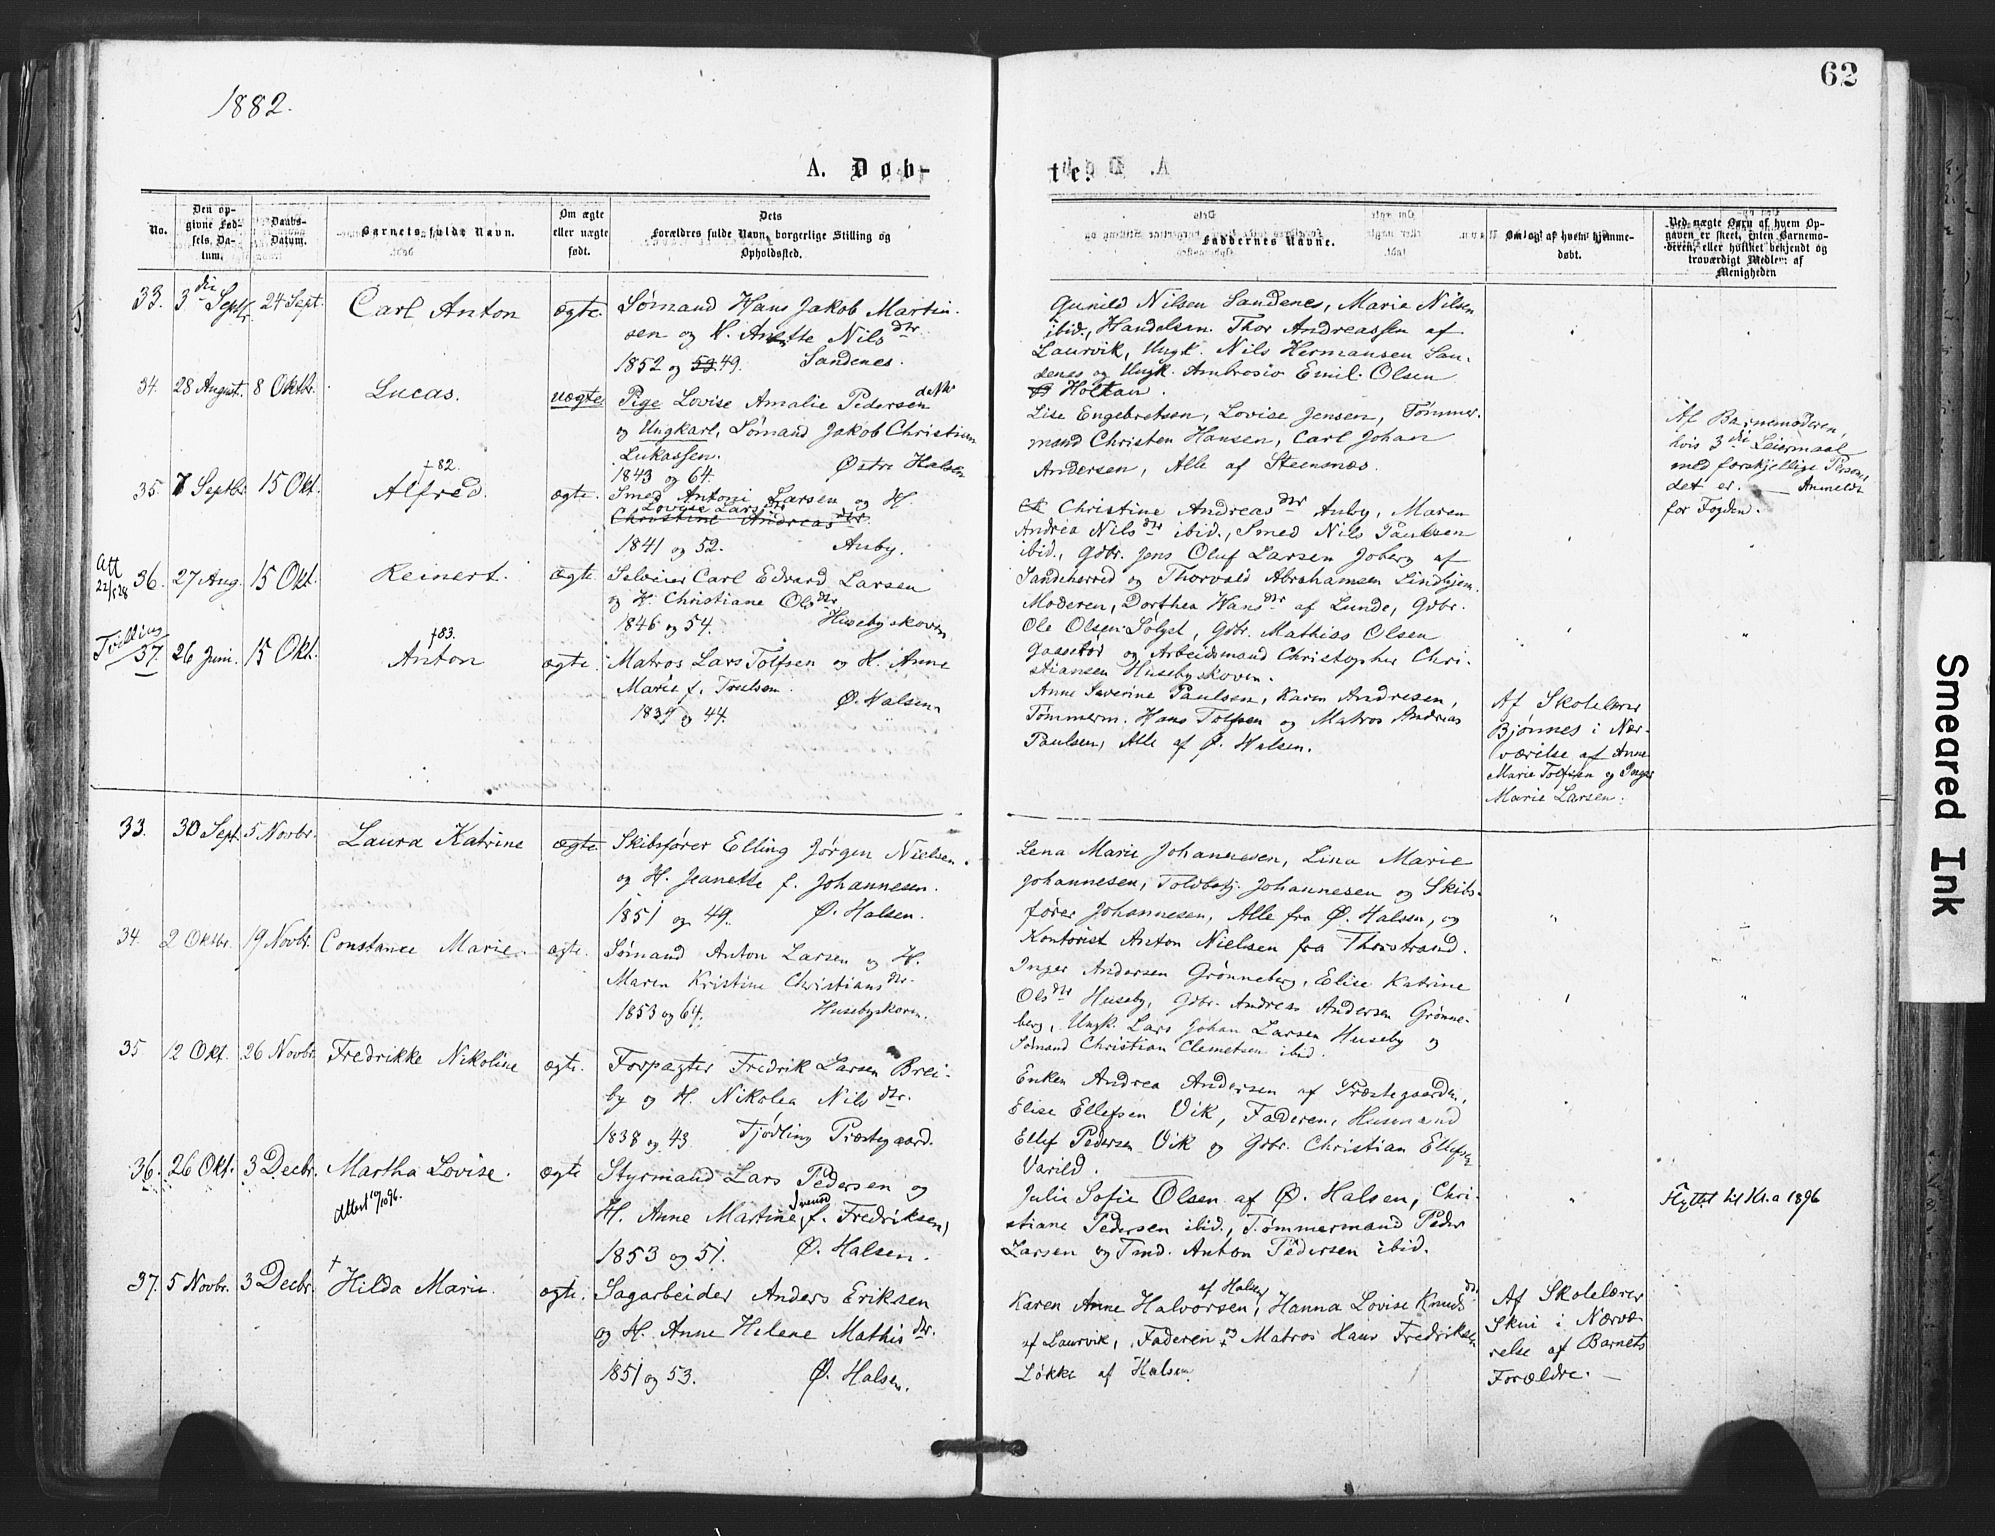 1882.
62
A. Døb-
te.
No.
Den op-
givne Fød-
sels-Da-
tum.
Daabs-
Datum.
Barnets fulde Navn.
Om ægte
eller uægte
født.
Dets
Forældres fulde Navn, borgerlige Stilling og
Opholdssted.
Faddernes Navne.
Om og af hvem hjemme-
døbt.
Ved uægte Børn af hvem Op-
gaven er skeet, enten Barnemo-
deren, eller hvilket bekjendt og
troværdigt Medlem af
Menigheden
33. 3die Septbr. 24 Sept. Carl Anton ægte.
Sømand Hans Jakob Martin-
sen og H. Anette Nilsdtr.
1852 og 53 49. Sandenes.
Gunild Nilsen Sandenes, Marie Nilsen
ibid., Handelsm. Thor Andreassen af
Laurvik, Ungk. Nils Hermansen San-
denes og Ungk. Ambrosio Emil Olsen
Holtan.
34. 28 August. 8 Oktbr. Lucas. uægte
Pige Lovise Amalie Pedersen
og Ungkarl, Sømand Jakob Christian
Lukassen.
1843 og 64. Østre Halsen
Lise Engebretsen, Lovise Jensen, Tømmer-
mand Christen Hansen, Carl Johan
Andersen, Alle af Steensnæs.
Af Barnemoderen,
hvis 3die Leiermaal
med forskjellige Persone
det er. — Anmeldt
for Fogden.
35. 7 Septbr. 15 Okt. †82. Alfred. ægte.
Smed Antoni Larsen og H.
Lovise Larsdtr
Christine Andreasdtr.
1841 og 52. Auby.
Christine Andreasdtr Auby, Maren
Andrea Nilsdtr ibid., Smed Nils Paulsen
ibid., Gdbr. Jens Oluf Larsen Joberg af
Sandeherred og Thorvald Abrahamsen Lindhjem.
Att
22/5 28
36. 27 Aug. 15 Okt. Reinert. ægte
Selveier Carl Edvard Larsen
og H. Christiane Olsdtr
1846 og 54. Husebyskoven
Moderen, Dorthea Hansdtr af Lunde, Gdbr.
Ole Olsen Sølyst, Gdbr. Mathias Olsen
og Arbeidsmand Christopher Chri-
stiansen Husebyskoven.
Tvilling
37. 26 Juni. 15 Okt. †83. Anton ægte
Matros Lars Tolfsen og H. Anne
Marie f. Truelsen.
1839 og 44. Ø. Halsen.
Anne Severine Paulsen, Karen Andresen,
Tømmerm. Hans Tolfsen og Matros Andreas
Paulsen, Alle af Ø. Halsen.
Af Skolelærer
Bjønnes i Nær-
værelse af Anne
Marie Tolfsen og Inger
Marie Larsen.
33. 30 Sept. 5 Novbr. Laura Katrine ægte.
Skibsfører Elling Jørgen Nielsen
og H. Jeanette f. Johannesen.
1851 og 49. Ø. Halsen.
Lena Marie Johannesen, Lina Marie
Johannesen, Toldbetj. Johannesen og Skibs-
fører Johannesen, Alle fra Ø. Halsen, og
Kontorist Anton Nielsen fra Thorstrand.
34. 2 Oktbr. 19 Novbr. Constance Marie ægte.
Sømand Anton Larsen og H.
Maren Kristine Christiansdtr.
1853 og 64. Husebyskoven.
Inger Andersen Grønneberg, Elise Katrine
Olsdtr Huseby, Gdbr. Andreas Andersen Grønne-
berg, Ungk. Lars Johan Larsen Huseby og
Sømand Christian Clemetsen ibid.
35 12 Okt. 26 Novbr. Fredrikke Nikoline ægte.
Forpagter Fredrik Larsen Brei-
by og H. Nikolea Nilsdtr.
1838 og 43 Tjødling Præstegaard.
Enken Andrea Andersen af Præstegaarden,
Elise Ellefsen Vik, Faderen, Husmand
Ellef Pedersen Vik og Gdbr. Christian Ellefsen
Varild.
36. 26 Okt. 3 Decbr. Martha Lovise. ægte
Attest 10/10 96.
Styrmand Lars Pedersen og
H. Anne Martine f. Fredriksen,
1853 og 51. Ø. Halsen.
Julie Sofie Olsen af Ø. Halsen, Chri-
stiane Pedersen ibid., Tømmermand Peder
Larsen og Tmd. Anton Pedersen ibid.
Flyttet til Kr.a 1896
37. 5 Novbr. 3 Decbr. † Hilda Marie. ægte.
Sagarbeider Anders Eriksen
og H. Anne Helene Mathisdtr.
1851 og 53. Ø. Halsen.
af Halsen
Karen Anne Halvorsen, Hanna Lovise Knudsdtr
af Laurvik, Faderen og Matros Hans Fredriksen
Løkke af Halsen.
Af Skolelærer
Skui i Nærvæ-
relse af Barnets
Forældre. —
Smeared Ink